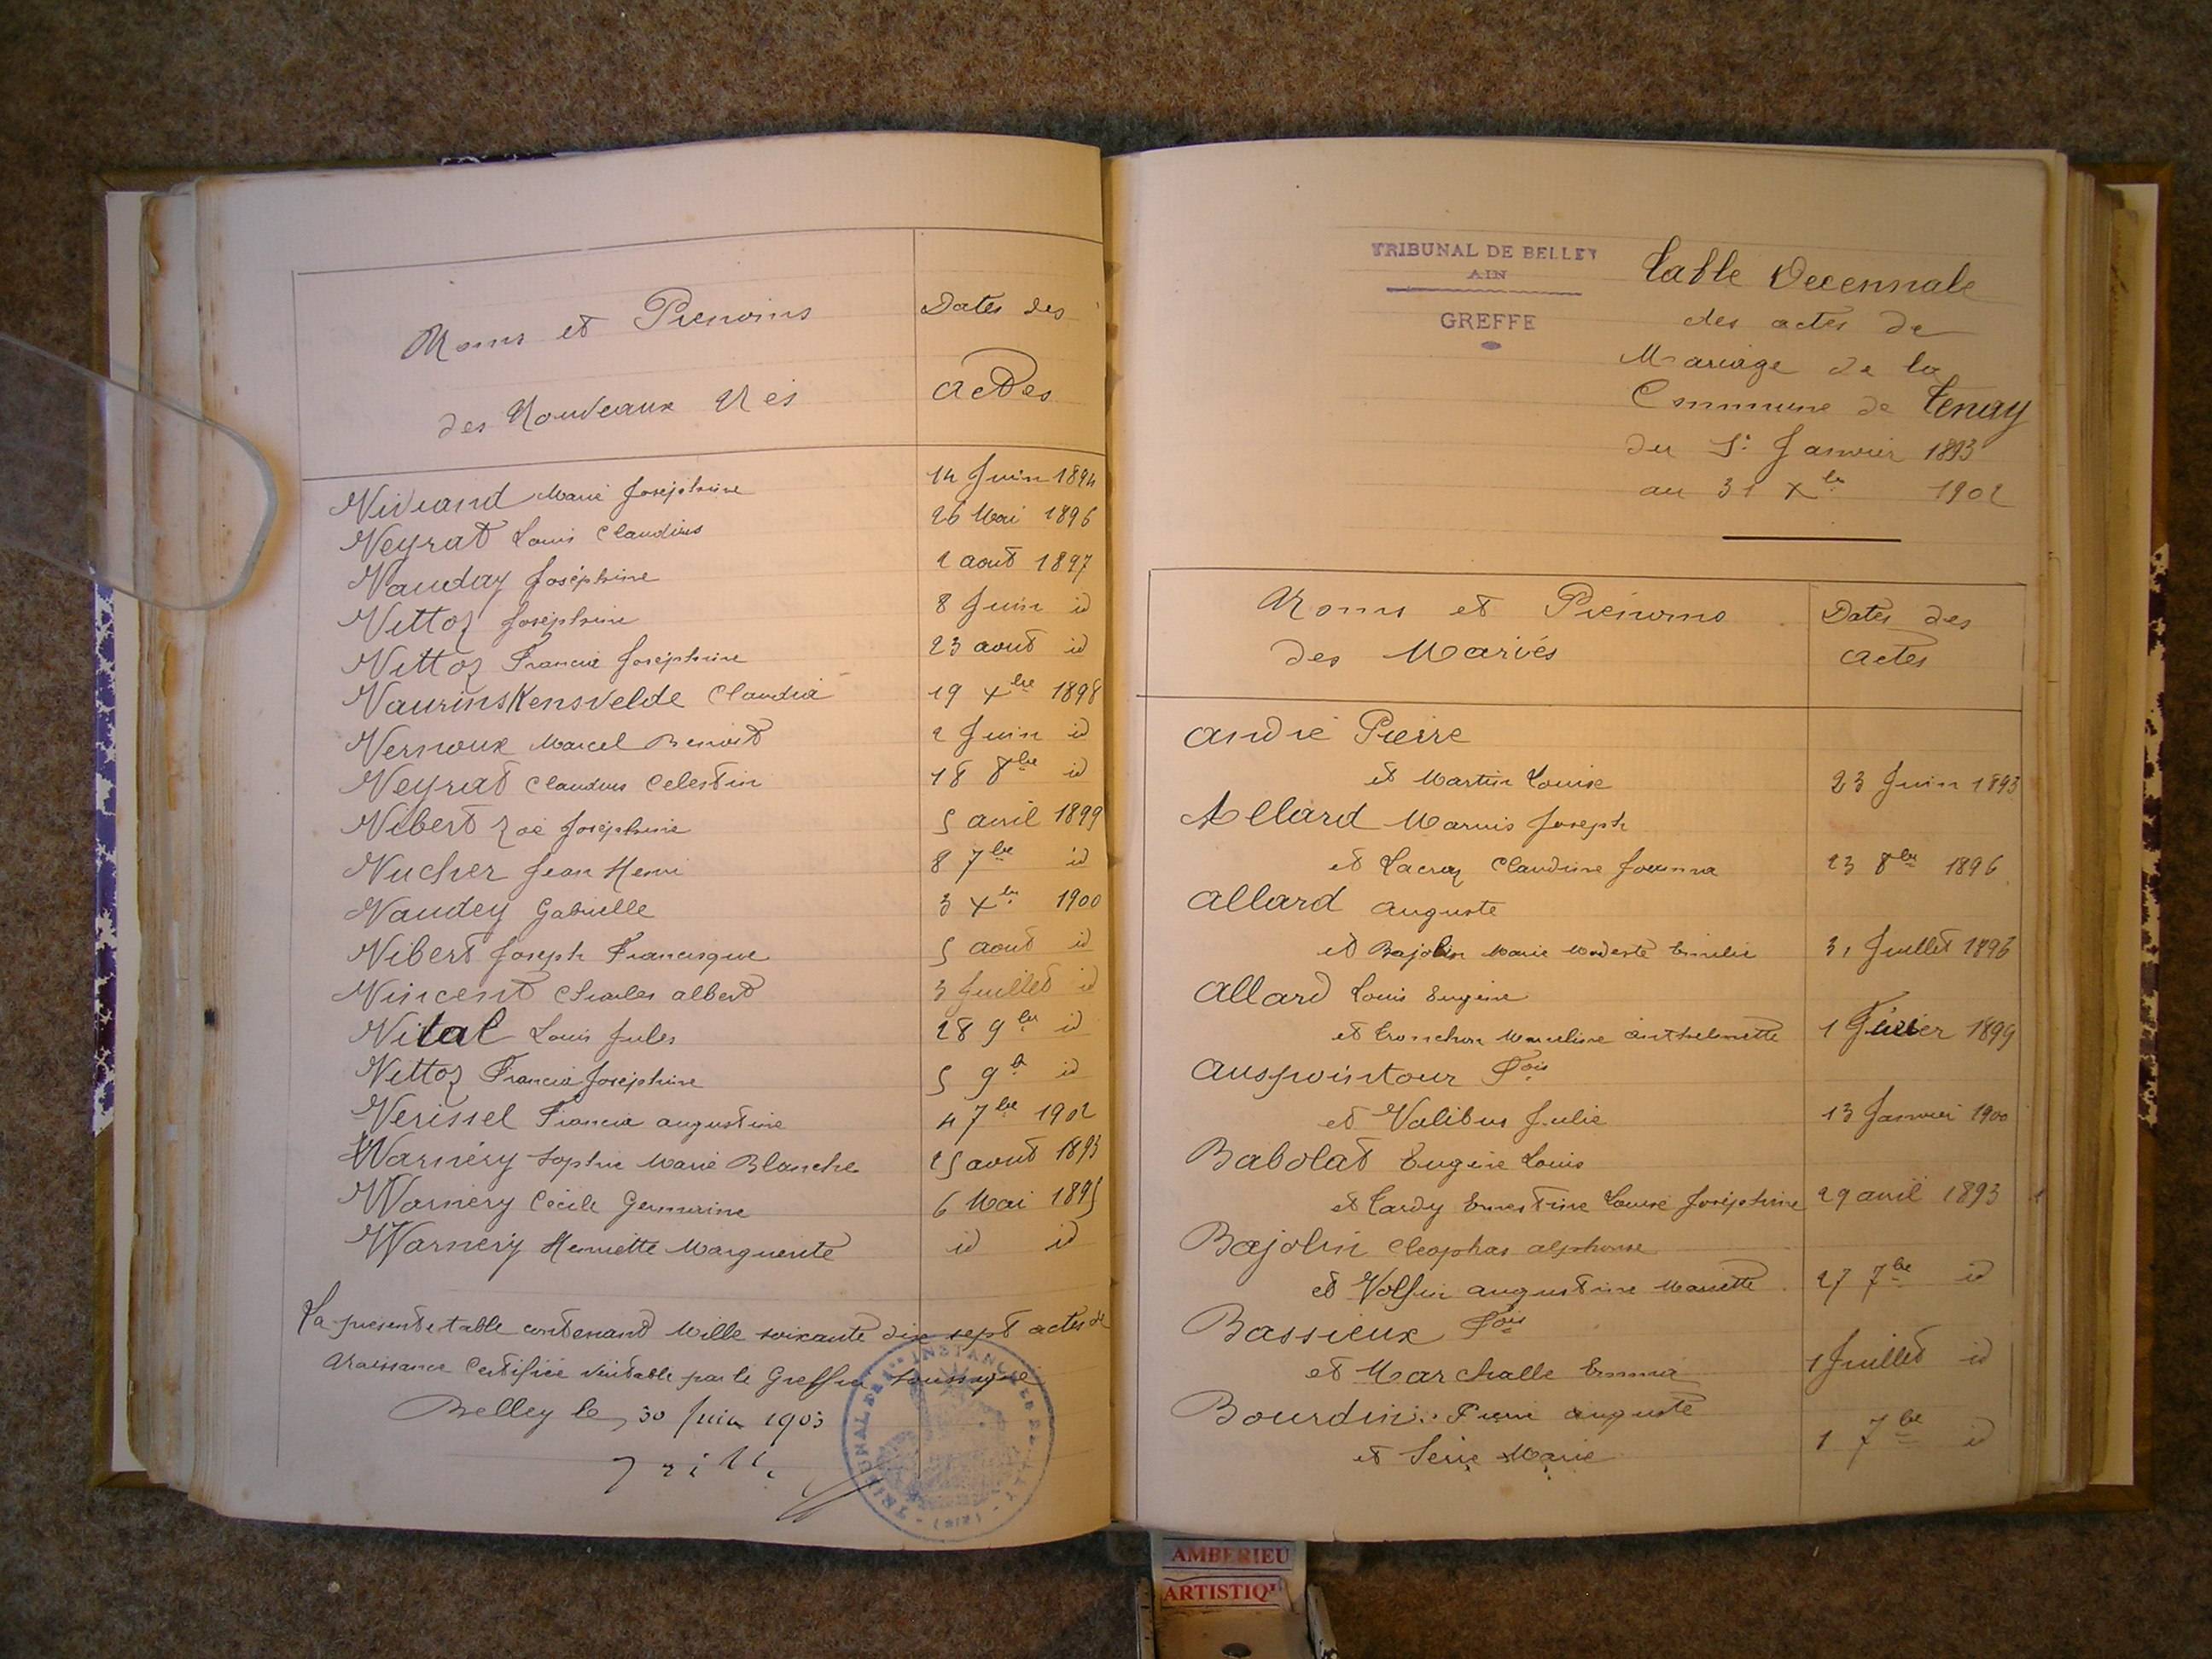 Noms et Prenoms
des Nouveaux Nés
Dates des
actes
Viviand Marie Joséphine 14 Juin 1894
Veyrat Louis Claudius 26 Mai 1896
Vauday Joséphine 2 aout 1897
Vittoz Joséphine 8 Juin id
Vittoz Francia Joséphine 23 aout id
VaurinsKensvelde Claudia 19 Xbre 1898
Vernoux Marcel Benoit 2 Juin id
Veyrat Claudius Celestin 18 8bre id
Vibert Zoé Joséphine 5 avril 1899
Vucher Jean Henri 8 7bre id
Vaudey Gabrielle 3 Xbre 1900
Vibert Joseph Francisque 5 aout id
Vincent Charles albert 3 Juillet id
Vital Louis Jules 28 9bre id
Vittoz Francia Joséphine 5 9b id
Verissel Francia augustine 4 7bre 1902
Warnery Sophie Marie Blanche 25 aout 1893
Warnery Cécile Germaine 6 Mai 1895
Warnery Henriette Marguerite id id
La présente table contenant Mille soixante dix sept actes de
Naissance Certifiée Véritable par le Greffier soussigné
Belley le 30 Juin 1903
TRIBUNAL DE BELLEY
AIN
GREFFE
table Decennale
des actes de
Mariage de la
Commune de tenay
du 1r Janvier 1893
au 31 Xbre 1902
Noms et Prénoms
des Mariés
Dates des
actes
andré Pierre
et Martin Louise 23 Juin 1893
Allard Marius Joseph
et Lacroz Claudine Joanna 23 8bre 1896
allard auguste
et Bajolin Marie Modeste Emilie 31 Juillet 1896
allard Louis Eugène
et tronchon Marceline anthelmette 1 Février 1899
auspointour Fois
et Valibus Julie 13 Janvier 1900
Babolat Eugène Louis
et tardy Ernestine Louise Joséphine 29 avril 1893
Bajolin Cleophas alphonse
et Volfin augustine Mariette 27 7bre id
Bassieux Fois
et Marchalle Emma 1 Juillet id
Bourdin Pierre auguste
et Série Marie 1 7bre id
AMBERIEU
ARTISTIQ